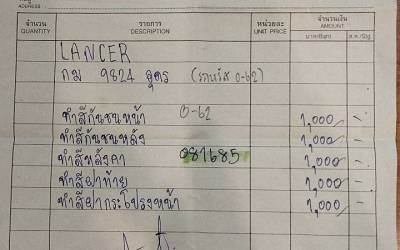 ADDRESS
จำนวน รายการ หน่วยละ จำนวนเงิน
QUANTITY DESCRIPTION UNIT PRICE AMOUNT
บาท/Baht ส.ต./Stg.
LANCER
กม 9824 อุดร (รหัส 0-62)
ทำสีกันชนหน้า 0-62 1,000 -
ทำสีกันชนหลัง 1,000 -
ทำสีหลังคา 081685 1,000 -
ทำสีฝาท้าย 1,000 -
ทำสีฝากระโปรงหน้า 1,000 -